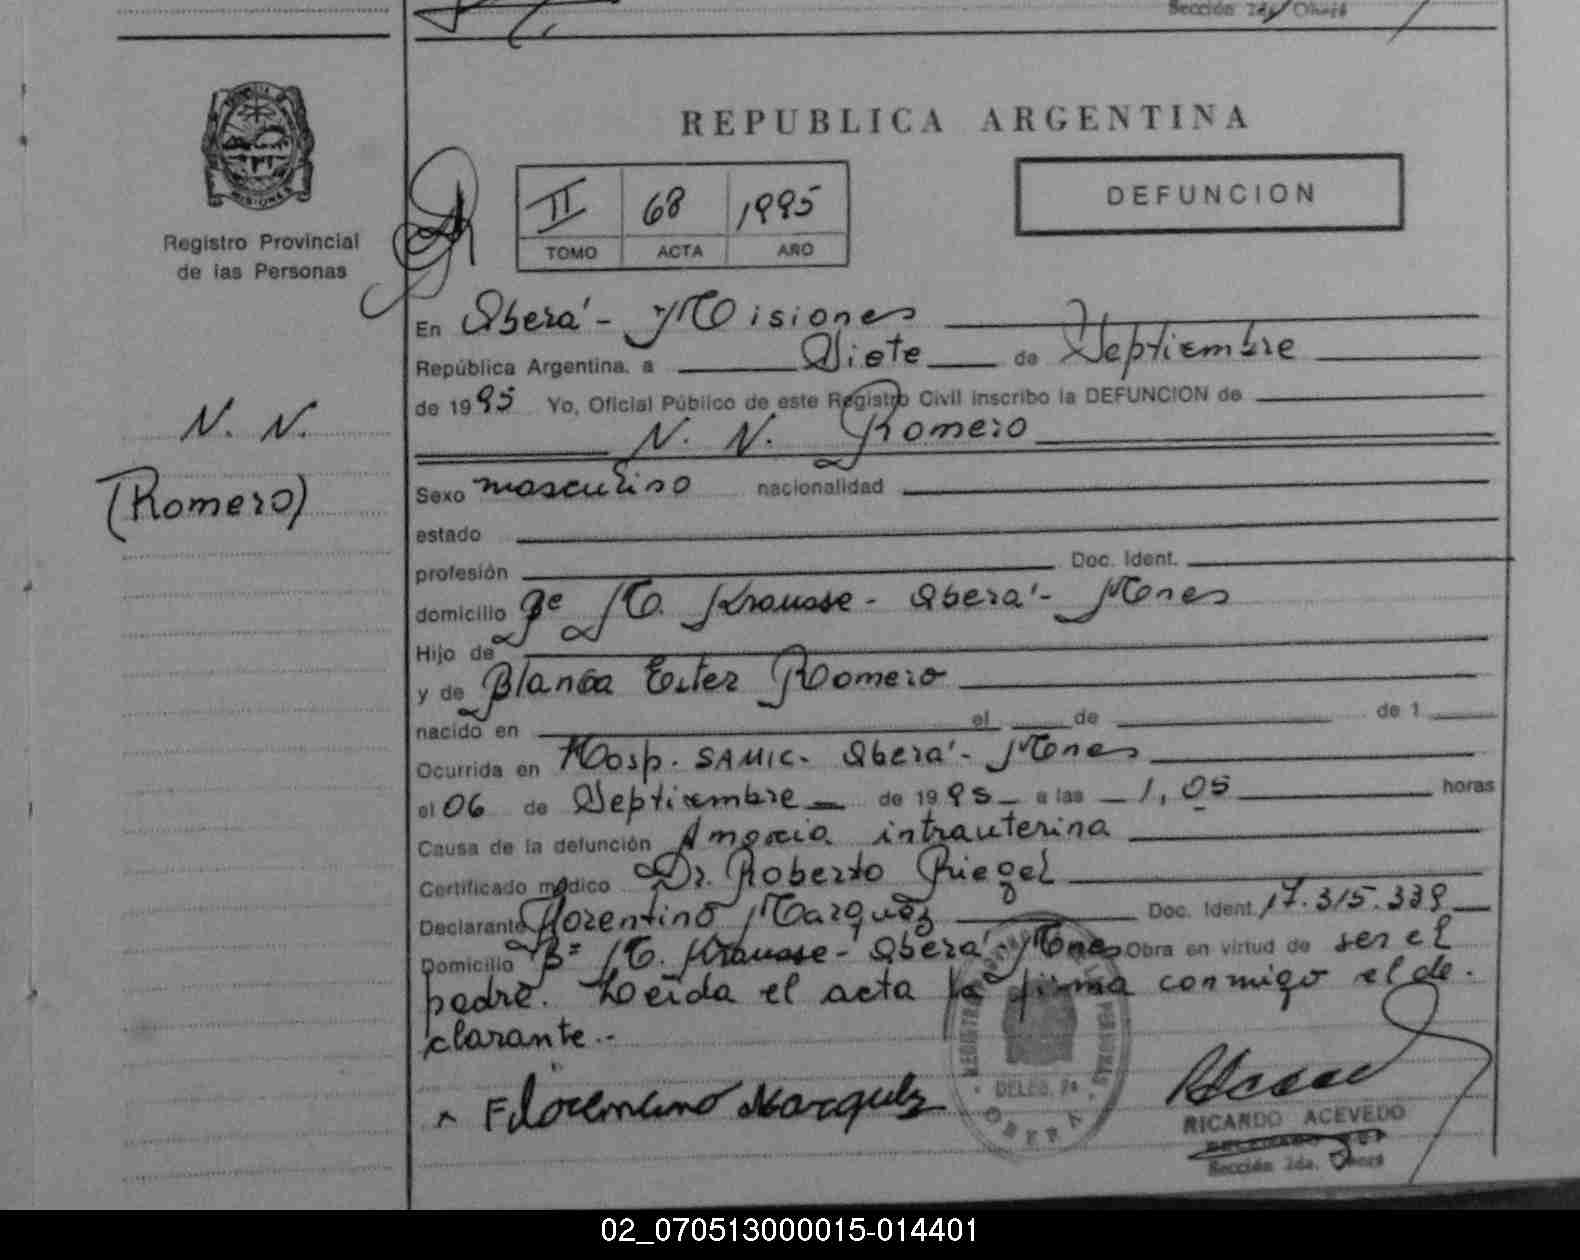 Sección 2da. Oberá
REPUBLICA ARGENTINA
MISIONES
Registro Provincial
de las Personas
II 68 1995
TOMO ACTA AÑO
DEFUNCION
En Oberá - Misiones
República Argentina, a Siete de Septiembre
de 1995 Yo, Oficial Público de este Registro Civil inscribo la DEFUNCION de
N. N. Romero
N. N.
(Romero)
Sexo masculino nacionalidad
estado
profesión Doc. Ident.
domicilio M. Krausse - Oberá - Mnes
Hijo de
y de Blanca Ester Romero
nacido en el de de 1
Ocurrida en Hosp. SAMIC - Oberá - Mnes
el 06 de Septiembre de 1995 a las 1,05 horas
Causa de la defunción Anoxia intrauterina
Certificado médico Dr. Roberto Riegel
Declarante Florentino Marquez Doc. Ident. 17.315.339
Domicilio Bº M. Krausse - Oberá - Mnes Obra en virtud de ser el
padre. Leída el acta la firma conmigo el de-
clarante.-
Florentino Marquez
DELEG. 2a
OBERA
RICARDO ACEVEDO
Sección 2da. Oberá
02_070513000015-014401